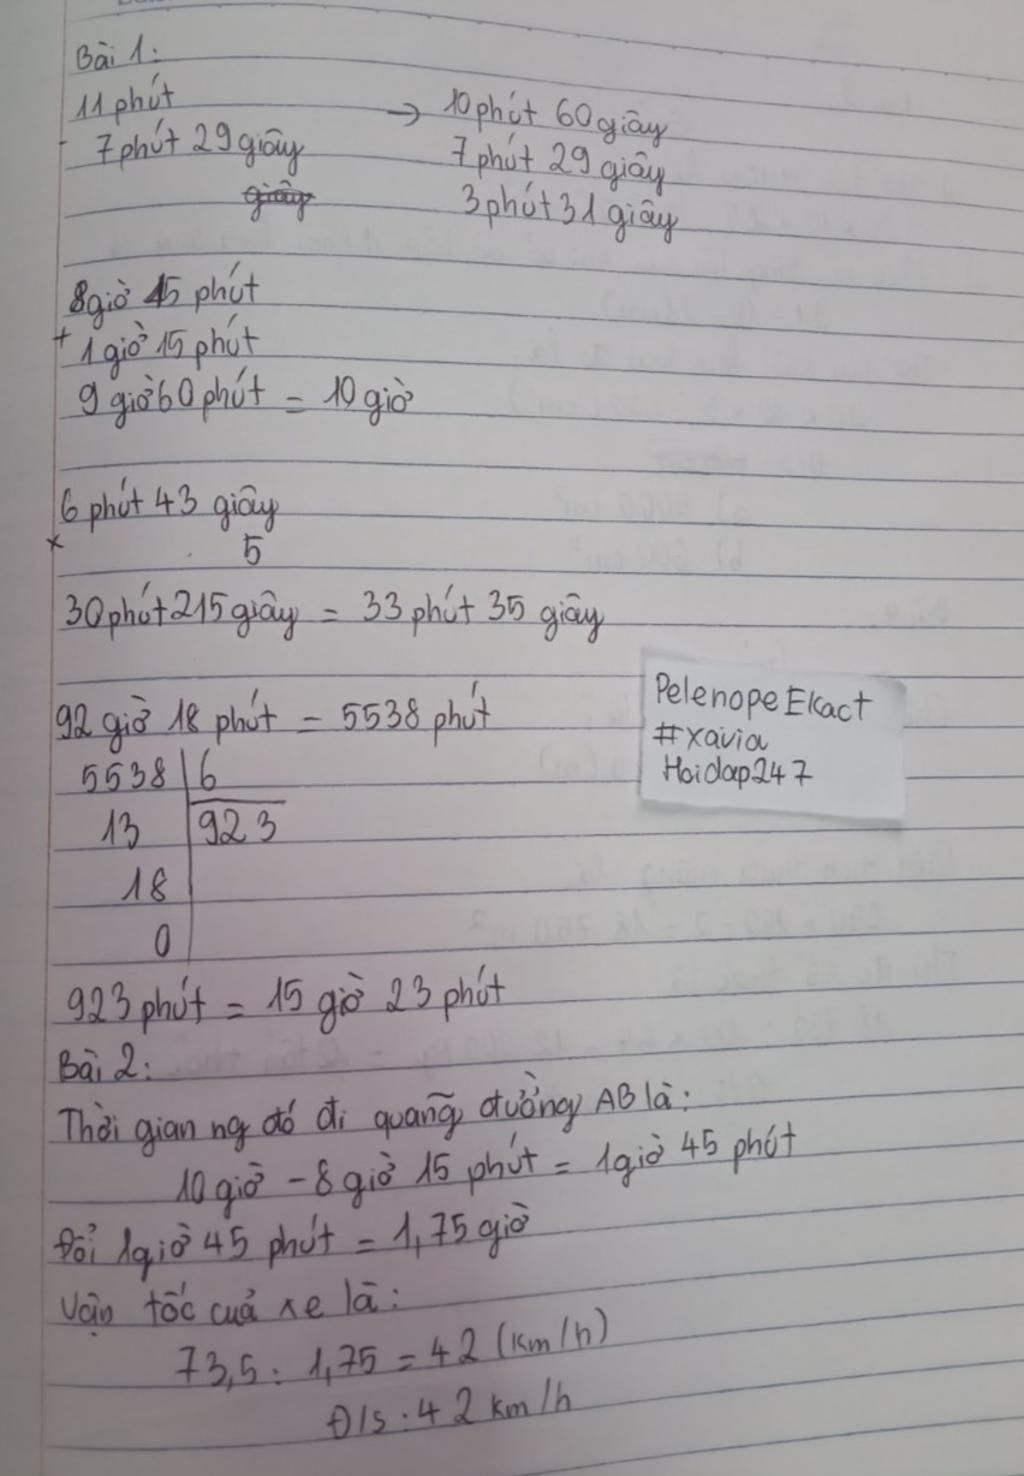 Bài 1:
11 phút → 10 phút 60 giây
- 7 phút 29 giây 7 phút 29 giây
giây 3 phút 31 giây
8 giờ 45 phút
+ 1 giờ 15 phút
9 giờ 60 phút = 10 giờ
6 phút 43 giây
x 5
30 phút 215 giây = 33 phút 35 giây
92 giờ 18 phút = 5538 phút
5538 6
13 923
18
0
PelenopeEkact
#xavia
Hoidap247
923 phút = 15 giờ 23 phút
Bài 2:
Thời gian ng đó đi quãng đường AB là:
10 giờ - 8 giờ 15 phút = 1 giờ 45 phút
Đổi 1 giờ 45 phút = 1,75 giờ
Vận tốc của xe là:
73,5 : 1,75 = 42 (km/h)
Đ/s : 42 km/h